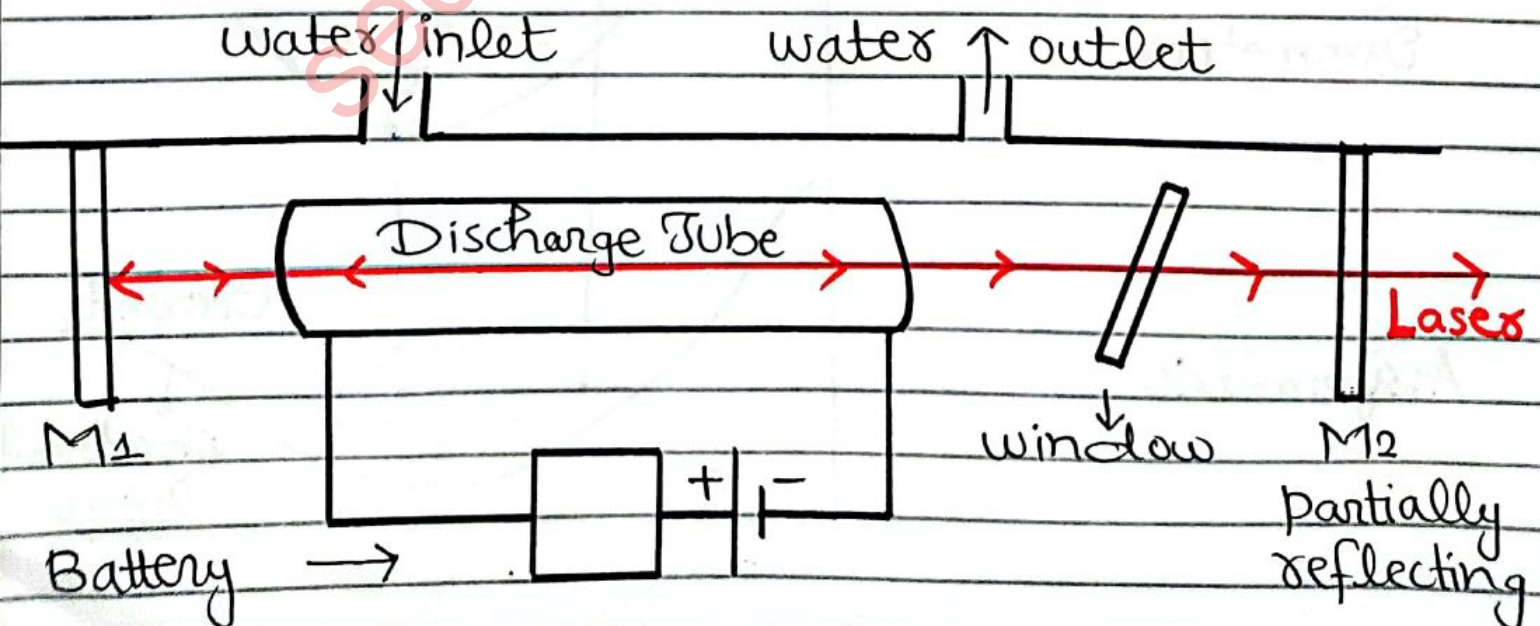 water inlet
water outlet
Discharge Tube
Laser
M1
window
M2
Partially
reflecting
+ -
Battery